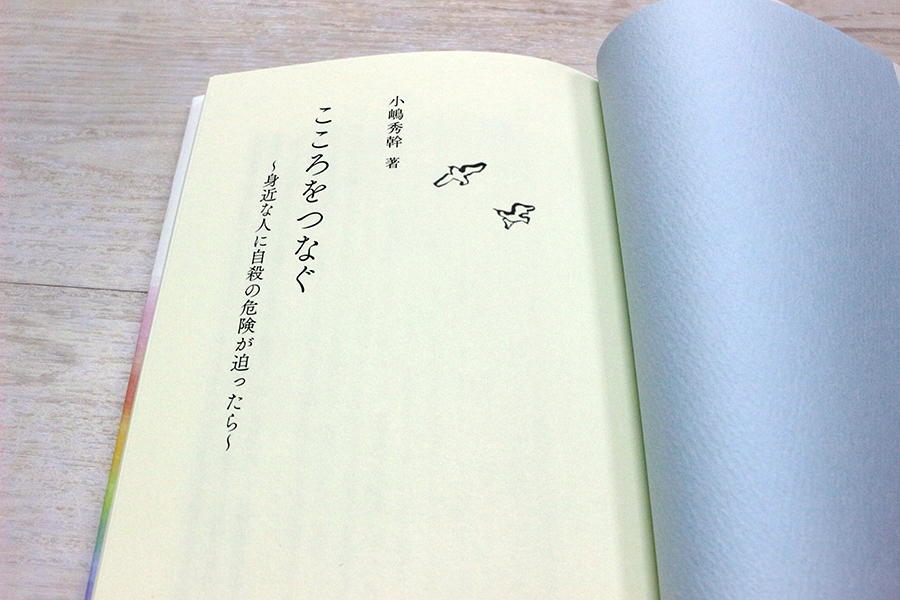 小嶋秀幹 著
こころをつなぐ
～身近な人に自殺の危険が迫ったら～